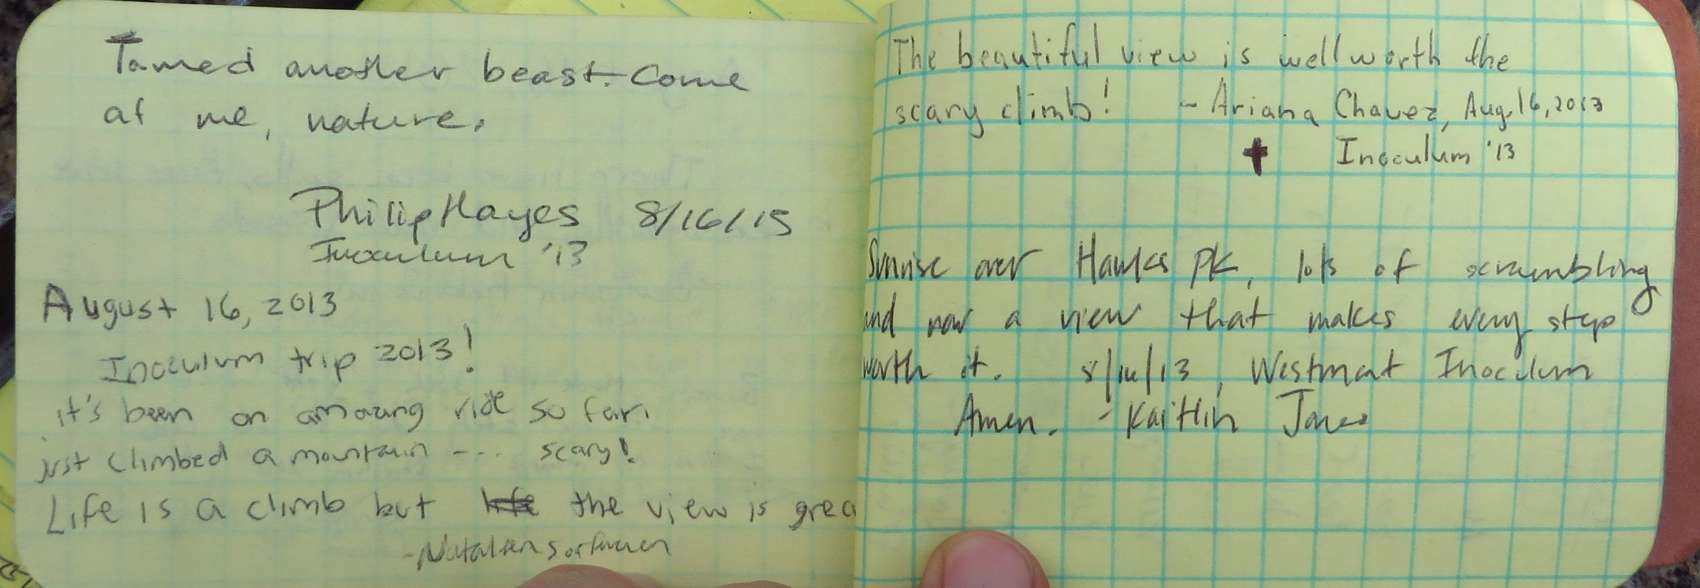 Tamed another beast. Come
at me, nature.
Philip Hayes 8/16/15
Inoculum '13
August 16, 2013
Inoculum trip 2013!
it's been an amazing ride so far.
just climbed a mountain --.. scary!
Life is a climb but life the view is grea
The beautiful view is well worth the
scary climb! - Ariana Chavez, Aug. 16, 2013
Inoculum '13
Sunrise over Hawks Pk, lots of scrambling
and now a view that makes every step
worth it. 8/16/13, Westmont Inoculum
Amen. - Kaitlin Jones